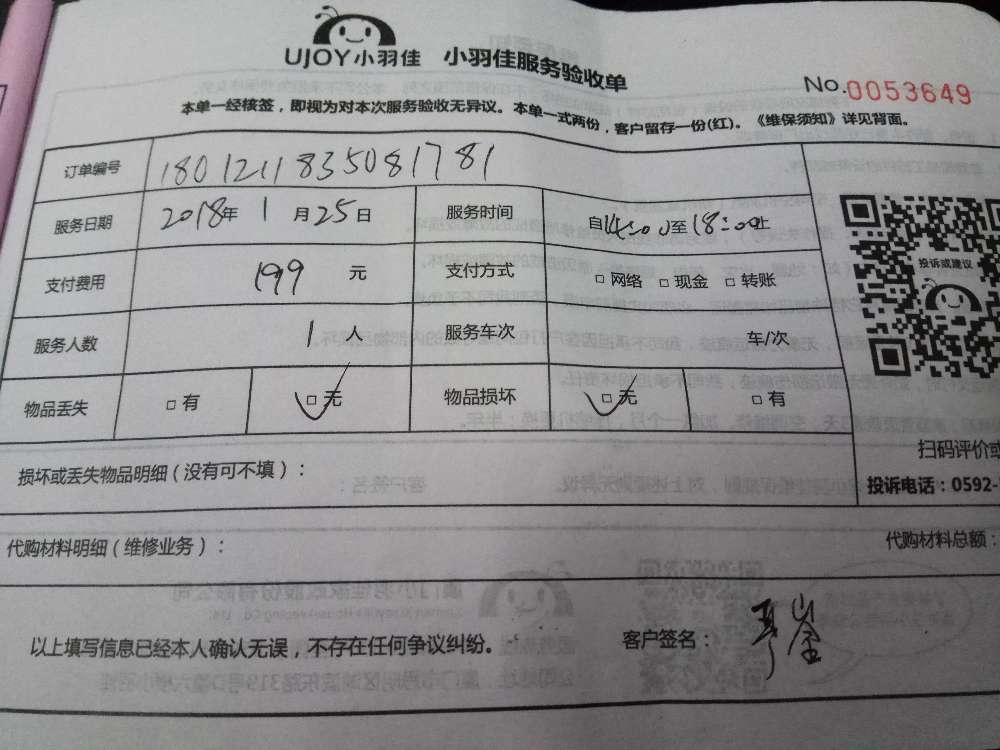 UJOY小羽佳 小羽佳服务验收单
No.0053649
本单一经核签，即视为对本次服务验收无异议。本单一式两份，客户留存一份(红)。《维保须知》详见背面。
订单编号 1801211835081781
服务日期 2018年1月25日 服务时间 自14:00至18:00止
投诉或建议
支付费用 199 元 支付方式 □网络 □现金 □转账
服务人数 1 人 服务车次 车/次
物品丢失 □有 □无 物品损坏 □无 □有
扫码评价或
损坏或丢失物品明细（没有可不填）：
投诉电话：0592-
代购材料明细（维修业务）：
代购材料总额：
以上填写信息已经本人确认无误，不存在任何争议纠纷。 客户签名：